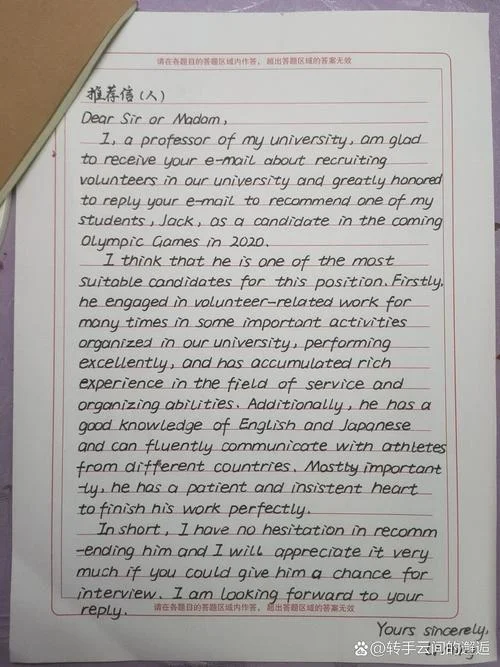 请在各题目的答题区域内作答，超出答题区域的答案无效
推荐信(人)
Dear Sir or Madam,
I, a professor of my university, am glad
to receive your e-mail about recruiting
volunteers in our university and greatly honored
to reply your e-mail to recommend one of my
students, Jack, as a candidate in the coming
Olympic Games in 2020.
I think that he is one of the most
suitable candidates for this position. Firstly,
he engaged in volunteer-related work for
many times in some important activities
organized in our university, performing
excellently, and has accumulated rich
experience in the field of service and
organizing abilities. Additionally, he has a
good knowledge of English and Japanese
and can fluently communicate with athletes
from different countries. Mostly important
-ly, he has a patient and insistent heart
to finish his work perfectly.
In short, I have no hesitation in recomm
-ending him and I will appreciate it very
much if you could give him a chance for
interview. I am looking forward to your
reply.
请在各题目的答题区域内作答，超出答题区域的答案无效
Yours sincerely,
@转手云间的邂逅